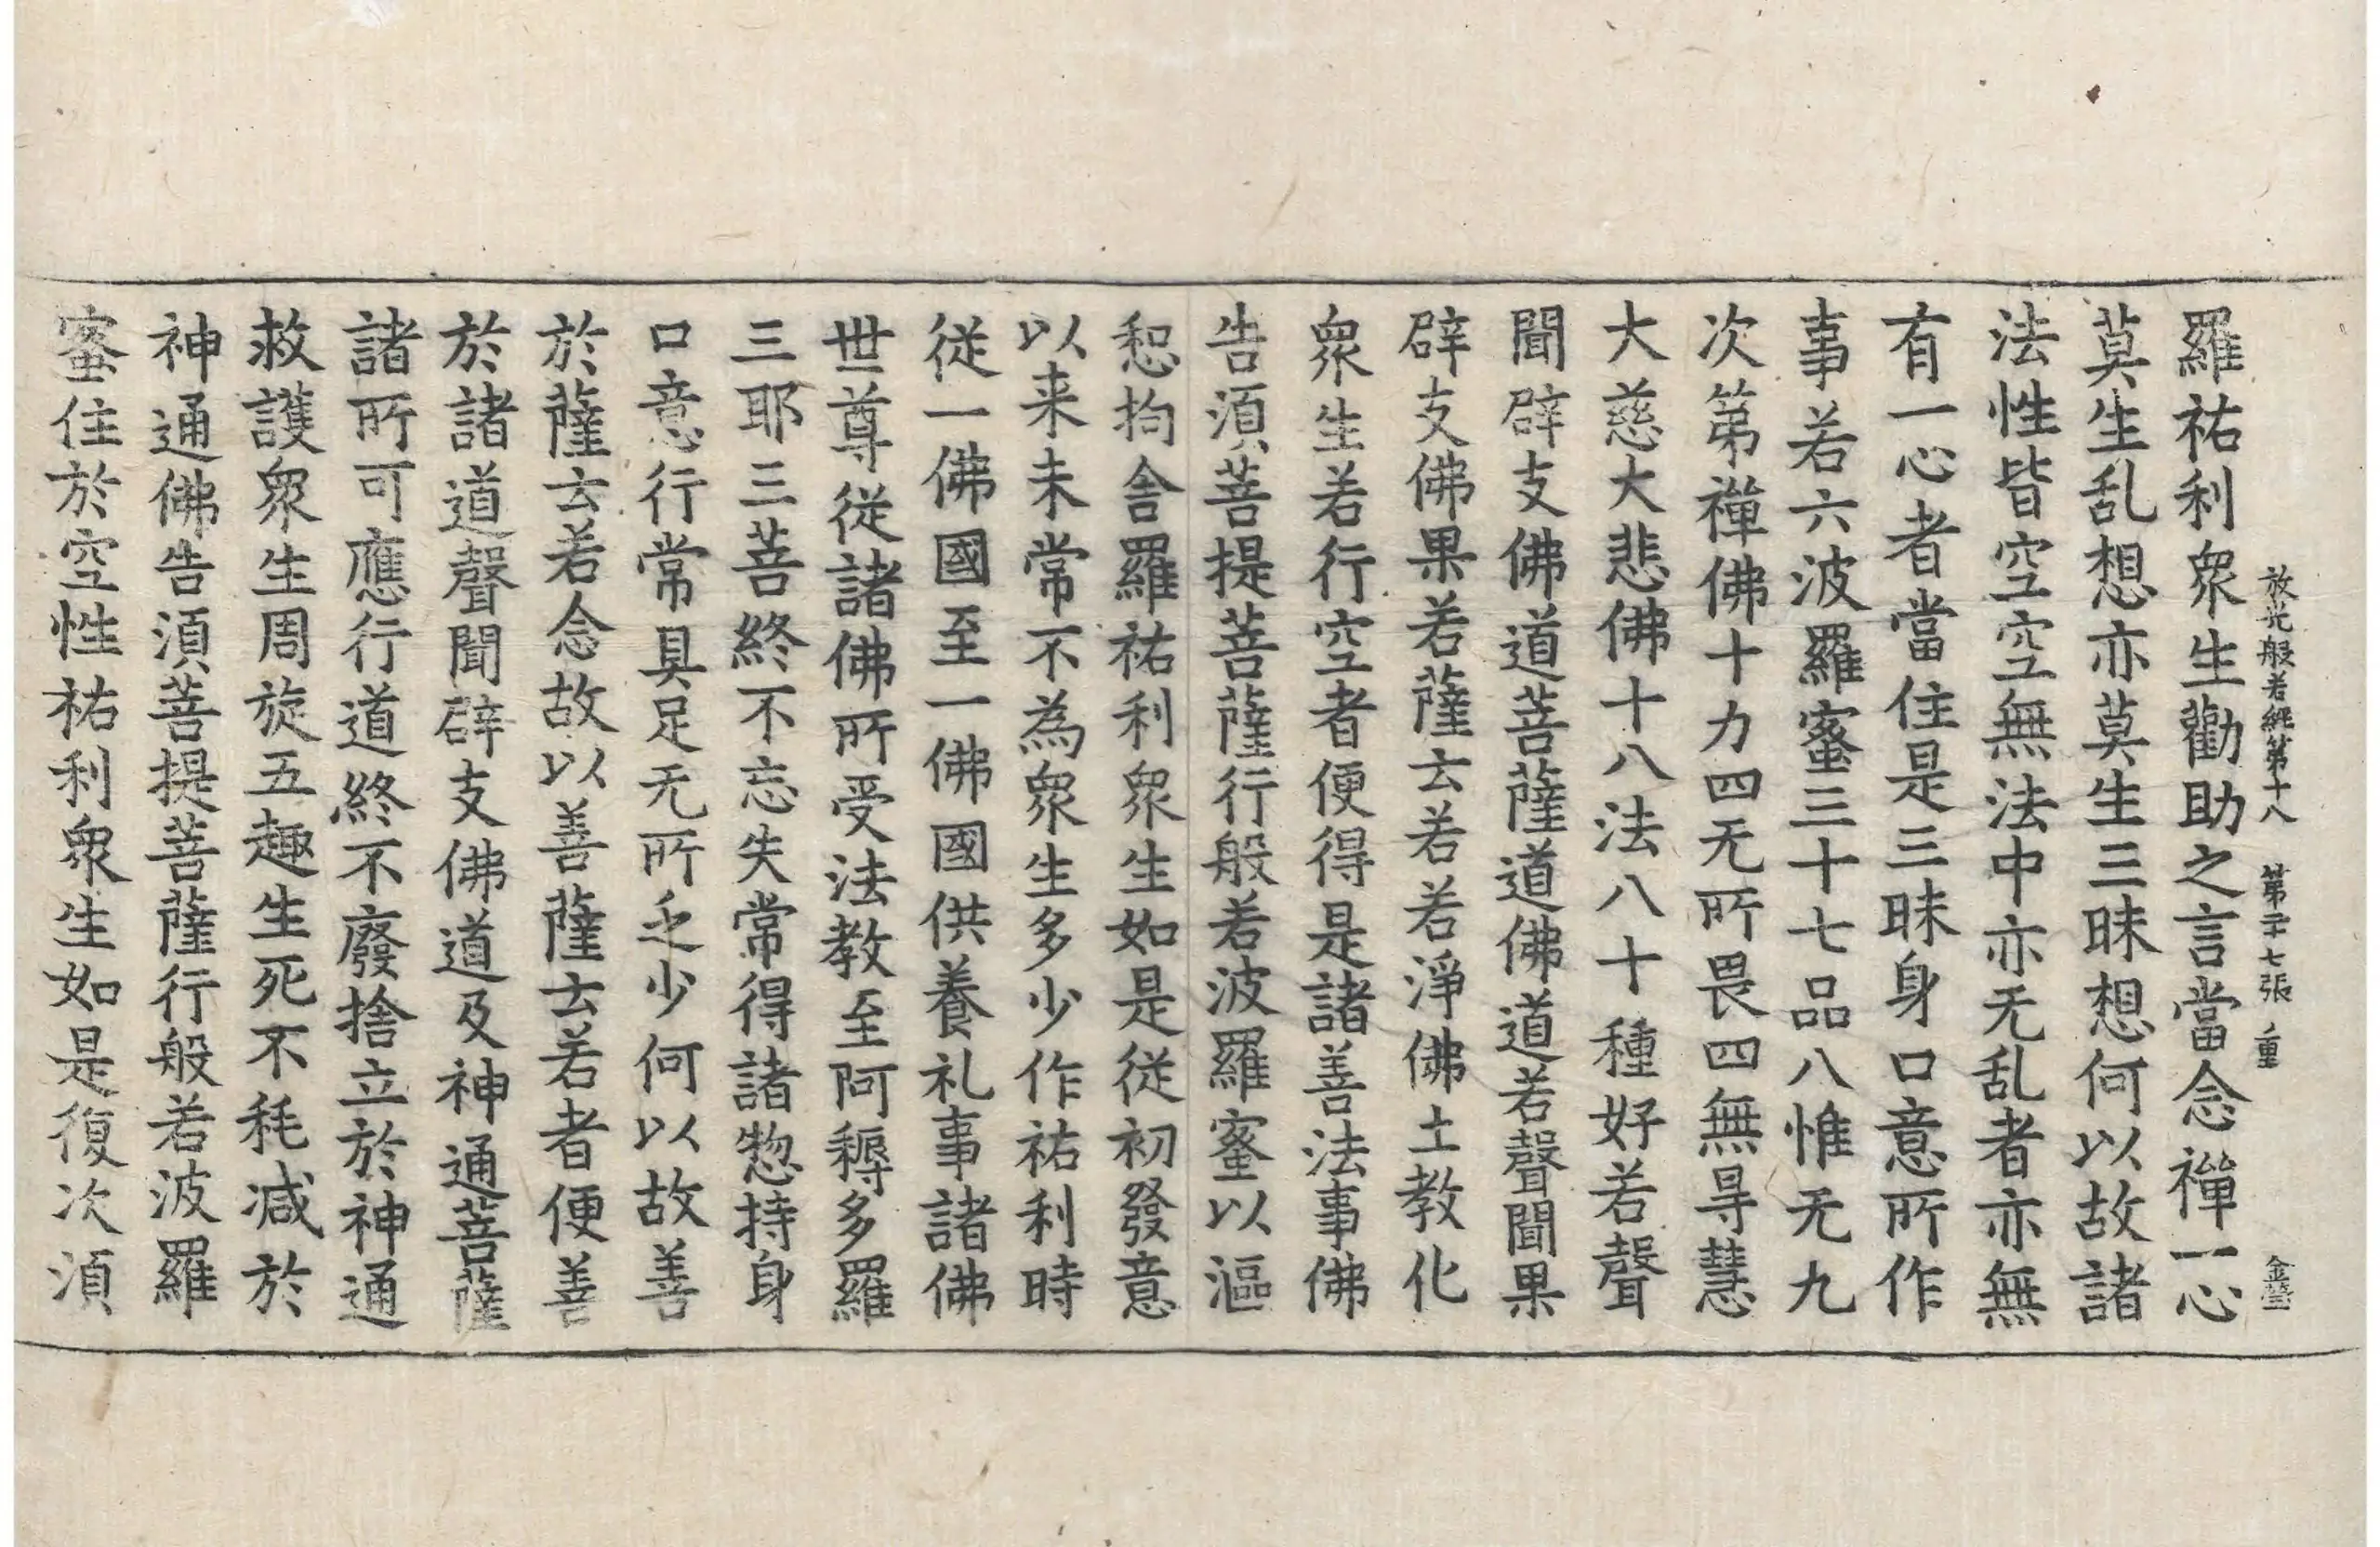 放光般若經第十八 第二十七張 重
羅祐利衆生勸助之言當念禪一心
莫生乱想亦莫生三昧想何以故諸
法性皆空空無法中亦无乱者亦無
有一心者當住是三昧身口意所作
事若六波羅蜜三十七品八惟无九
次第禪佛十力四无所畏四無㝵慧
大慈大悲佛十八法八十種好若聲
聞辟支佛道菩薩道佛道若聲聞果
辟支佛果若薩云若若淨佛土教化
衆生若行空者便得是諸善法事佛
告須菩提菩薩行般若波羅蜜以漚
惒拘舍羅祐利衆生如是從初發意
以来未常不為衆生多少作祐利時
從一佛國至一佛國供養礼事諸佛
世尊從諸佛所受法教至阿耨多羅
三耶三菩終不忘失常得諸惣持身
口意行常具足无所乏少何以故善
於薩云若念故以善薩云若者便善
於諸道聲聞辟支佛道及神通菩薩
諸所可應行道終不廢捨立於神通
救護衆生周旋五趣生死不耗减於
神通佛告須菩提菩薩行般若波羅
蜜住於空性祐利衆生如是復次須